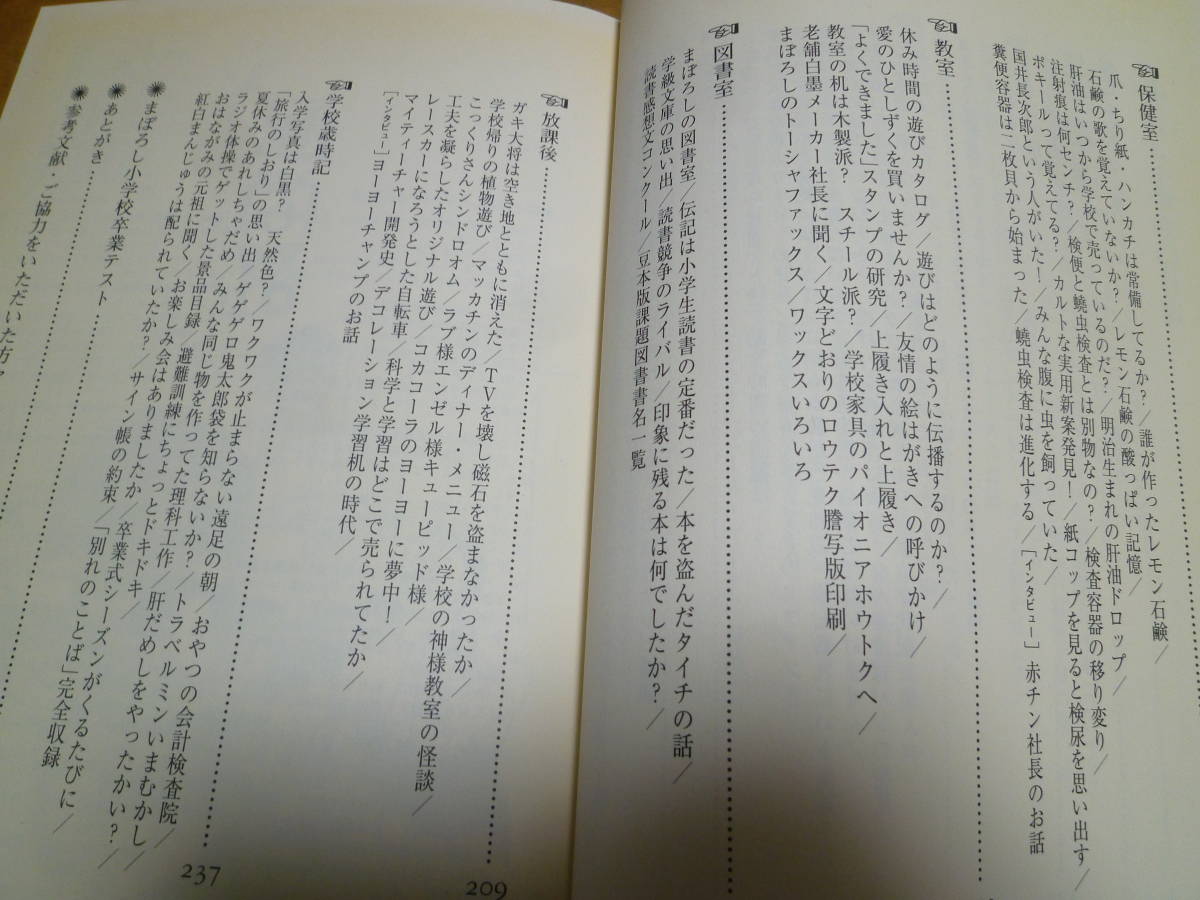 ☜ 保健室
爪・ちり紙・ハンカチは常備してるか?/誰が作ったレモン石鹸/
石鹸の歌を覚えていないか?/レモン石鹸の酸っぱい記憶/
肝油はいつから学校で売っているのだ?/明治生まれの肝油ドロップ/
注射痕は何センチ?/検便と蟯虫検査とは別物なの?/検査容器の移り変り/
ポキールって覚えてる?/カルトな実用新案発見!/紙コップを見ると検尿を思い出す/
国井長次郎という人がいた!/みんな腹に虫を飼っていた/
糞便容器は二枚貝から始まった/蟯虫検査は進化する/[インタビュー]赤チン社長のお話
☜ 教室
休み時間の遊びカタログ/遊びはどのように伝播するのか?/
愛のひとしずくを買いませんか?/友情の絵はがきへの呼びかけ/
「よくできました」スタンプの研究/上履き入れと上履き/
教室の机は木製派? スチール派?/学校家具のパイオニアホウトクへ/
老舗白墨メーカー社長に聞く/文字どおりのロウテク謄写版印刷/
まぼろしのトーシャファックス/ワックスいろいろ
☜ 図書室
まぼろしの図書室/伝記は小学生読書の定番だった/本を盗んだタイチの話/
学級文庫の思い出/読書競争のライバル/印象に残る本は何でしたか?/
読書感想文コンクール/豆本版課題図書書名一覧
☜ 放課後
209
ガキ大将は空き地とともに消えた/TVを壊し磁石を盗まなかったか/
学校帰りの植物遊び/マッカチンのディナー・メニュー/学校の神様教室の怪談/
こっくりさんシンドロオム/ラブ様エンゼル様キューピッド様/
工夫を凝らしたオリジナル遊び/コカコーラのヨーヨーに夢中!/
レースカーになろうとした自転車/科学と学習はどこで売られてたか/
マイティーチャー開発史/デコレーション学習机の時代/
[インタビュー]ヨーヨーチャンプのお話
☜ 学校歳時記
237
入学写真は白黒? 天然色?/ワクワクが止まらない遠足の朝/おやつの会計検査院/
「旅行のしおり」の思い出/ゲゲゲロ鬼太郎袋を知らないか?/トラベルミンいまむかし/
夏休みのあれしちゃだめ/みんな同じ物を作ってた理科工作/肝だめしをやったかい?/
ラジオ体操でゲットした景品目録/避難訓練にちょっとドキドキ/
おはながみの元祖に聞く/お楽しみ会はありましたか/卒業式シーズンがくるたびに/
紅白まんじゅうは配られていたか?/サイン帳の約束/「別れのことば」完全収録
まぼろし小学校卒業テスト
あとがき
参考文献・ご協力をいただいた方々